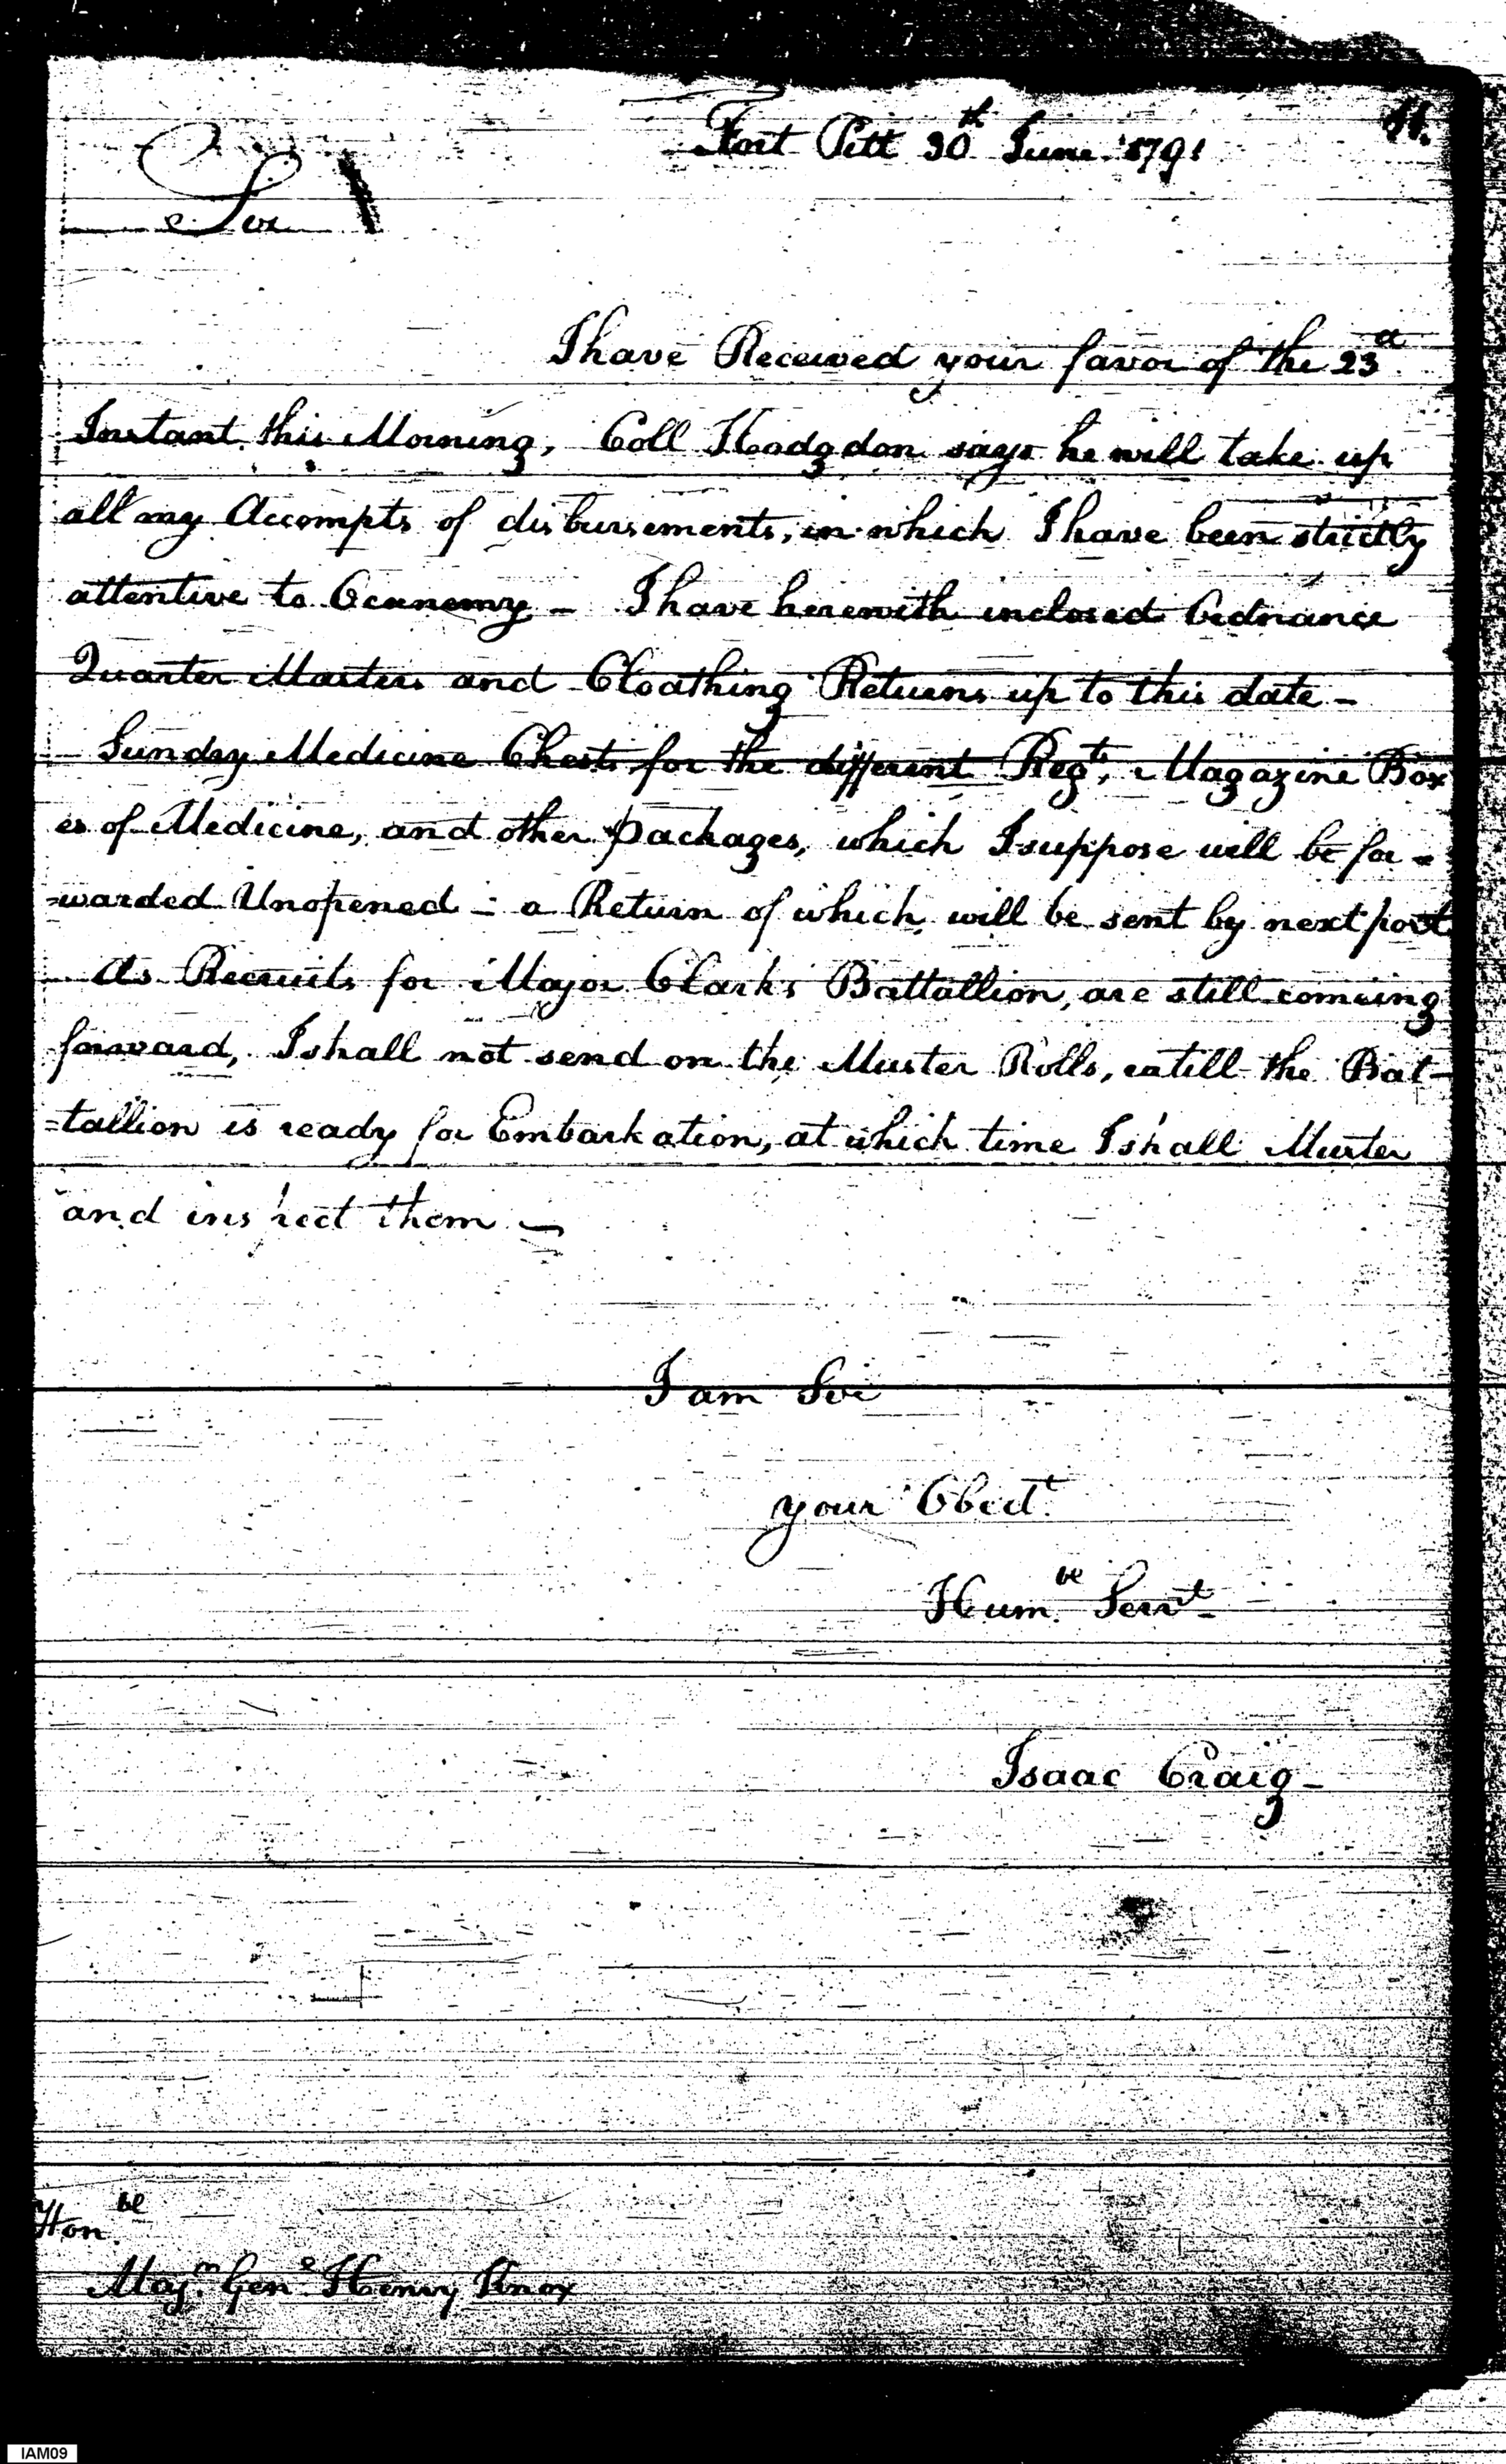 Fort Pitt 30th June 1791
Sir
I have Received your favor of the 23d
Instant this Morning, Coll Hodgdon says he will take up
all my Accompts of disbursements, in which I have been strictly
attentive to Oconemy - I have herewith inclosed Ordnance
Quarter Masters and Cloathing Returns up to this date -
Sundry Medicine Chests for the different Regts, Magazine Box
es of Medicine, and other packages, which I suppose will be for =
=warded Unopened - a Return of which will be sent by next post
As Recruits for Major Clark's Battallion, are still comeing
forward, I shall not send on the Muster Rolls, untill the Bat-
=tallion is ready for Embarkation, at which time I shall Muster
and inspect them -
I am Sir
your Obedt
Humbe Servt
Isaac Craig -
Honbe
Majr Genl Henry Knox
IAM09